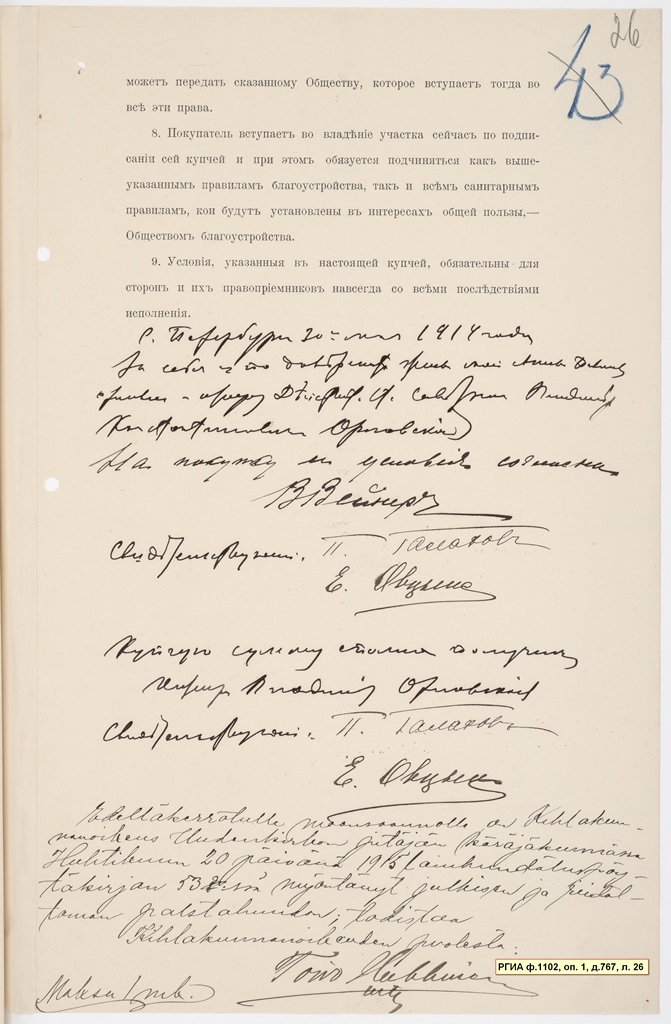 26
43
можетъ передать сказанному Обществу, которое вступаетъ тогда во
всѣ эти права.
8. Покупатель вступаетъ во владѣніе участка сейчасъ по подпи-
саніи сей купчей и при этомъ обязуется подчиняться какъ выше-
указаннымъ правиламъ благоустройства, такъ и всѣмъ санитарнымъ
правиламъ, кои будутъ установлены въ интересахъ общей пользы,—
Обществомъ благоустройства.
9. Условія, указанныя въ настоящей купчей, обязательны для
сторонъ и ихъ правопріемниковъ навсегда со всѣми послѣдствіями
исполненія.
С. Петербургъ 20 мая 1914 года
За себя и по довѣренности жены моей Анны
Владиміръ
Константиновичъ Орловскій
На покупку и условія согласенъ
В Вейнеръ
П. Галаховъ
Е. Овцынъ
сумму сполна получилъ
Владиміръ Орловскій
П. Галаховъ
Е. Овцынъ
Edelläkerrotulle on Kihlakun-
nanoikeus Uudenkirkon pitäjän käräjäkunnassa
Huhtikuun 20 päivänä 1915 lainhuudatuspöy-
täkirjan 53 §:ssä myöntänyt julkisen ja
toman todistaa
Kihlakunnanoikeuden puolesta:
Toivo
РГИА ф.1102, оп. 1, д.767, л. 26